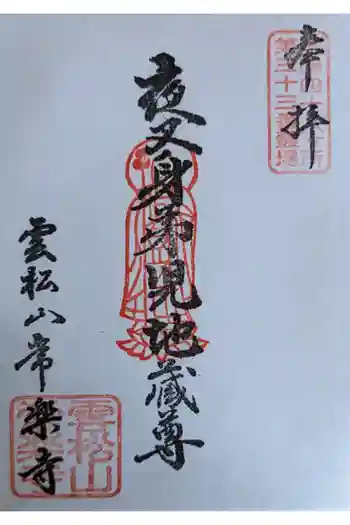 奉拝
夜叉身弟児地蔵尊
雲松山常楽寺
雲松山